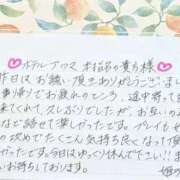 ホテルアリス 本指名の貴方様♡
昨日はお誘い頂きありがとうございました
事帰りでお疲れのところ、途中寄って
れて、久しぶりでしたが、お互いの
など話せて楽しかったです。プレイもせ
の攻めでたくさん気持ち良くなって頂
かったです。今日はゆっくり休んで下さい!!ま
お待ちしております。